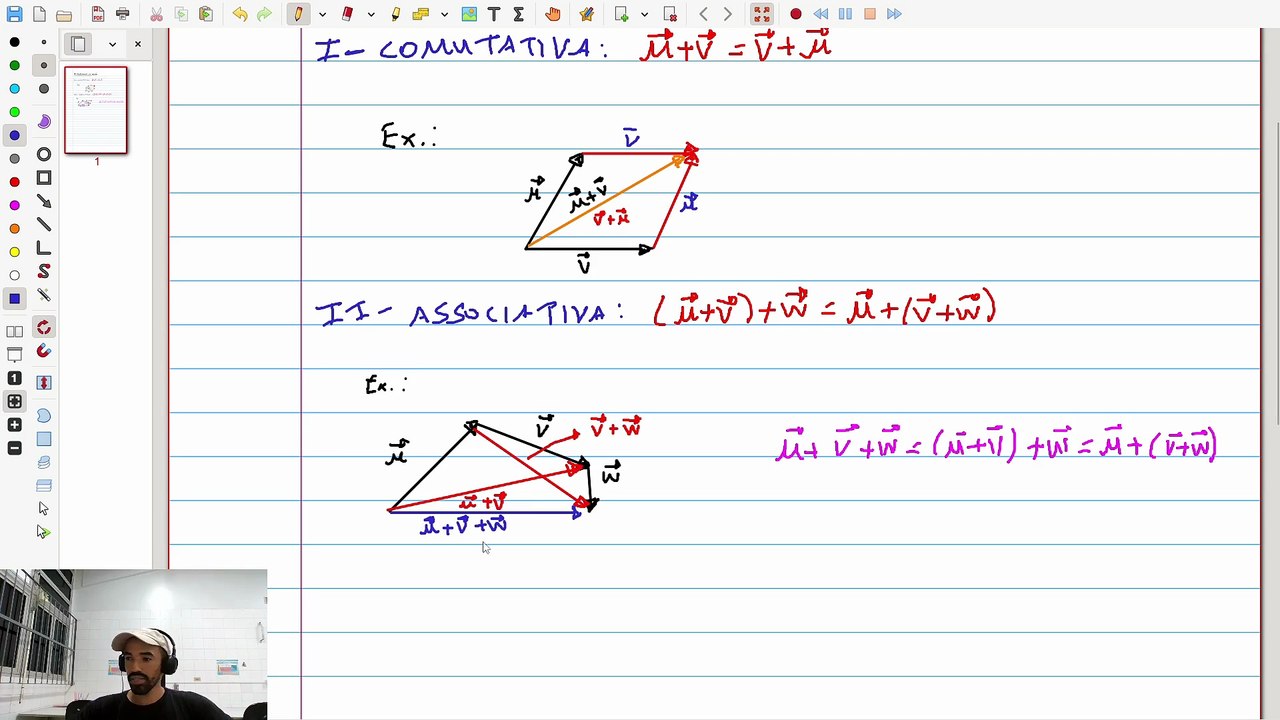 I - COMUTATIVA: μ⃗+v⃗ = v⃗+μ⃗
Ex.:
v⃗
μ⃗
μ⃗+v⃗
v⃗+μ⃗
μ⃗
v⃗
II - ASSOCIATIVA: (μ⃗+v⃗)+w⃗ = μ⃗+(v⃗+w⃗)
Ex.:
μ⃗
v⃗
v⃗+w⃗
w⃗
μ⃗+v⃗
μ⃗+v⃗+w⃗
μ⃗+v⃗+w⃗=(μ⃗+v⃗)+w⃗=μ⃗+(v⃗+w⃗)
1